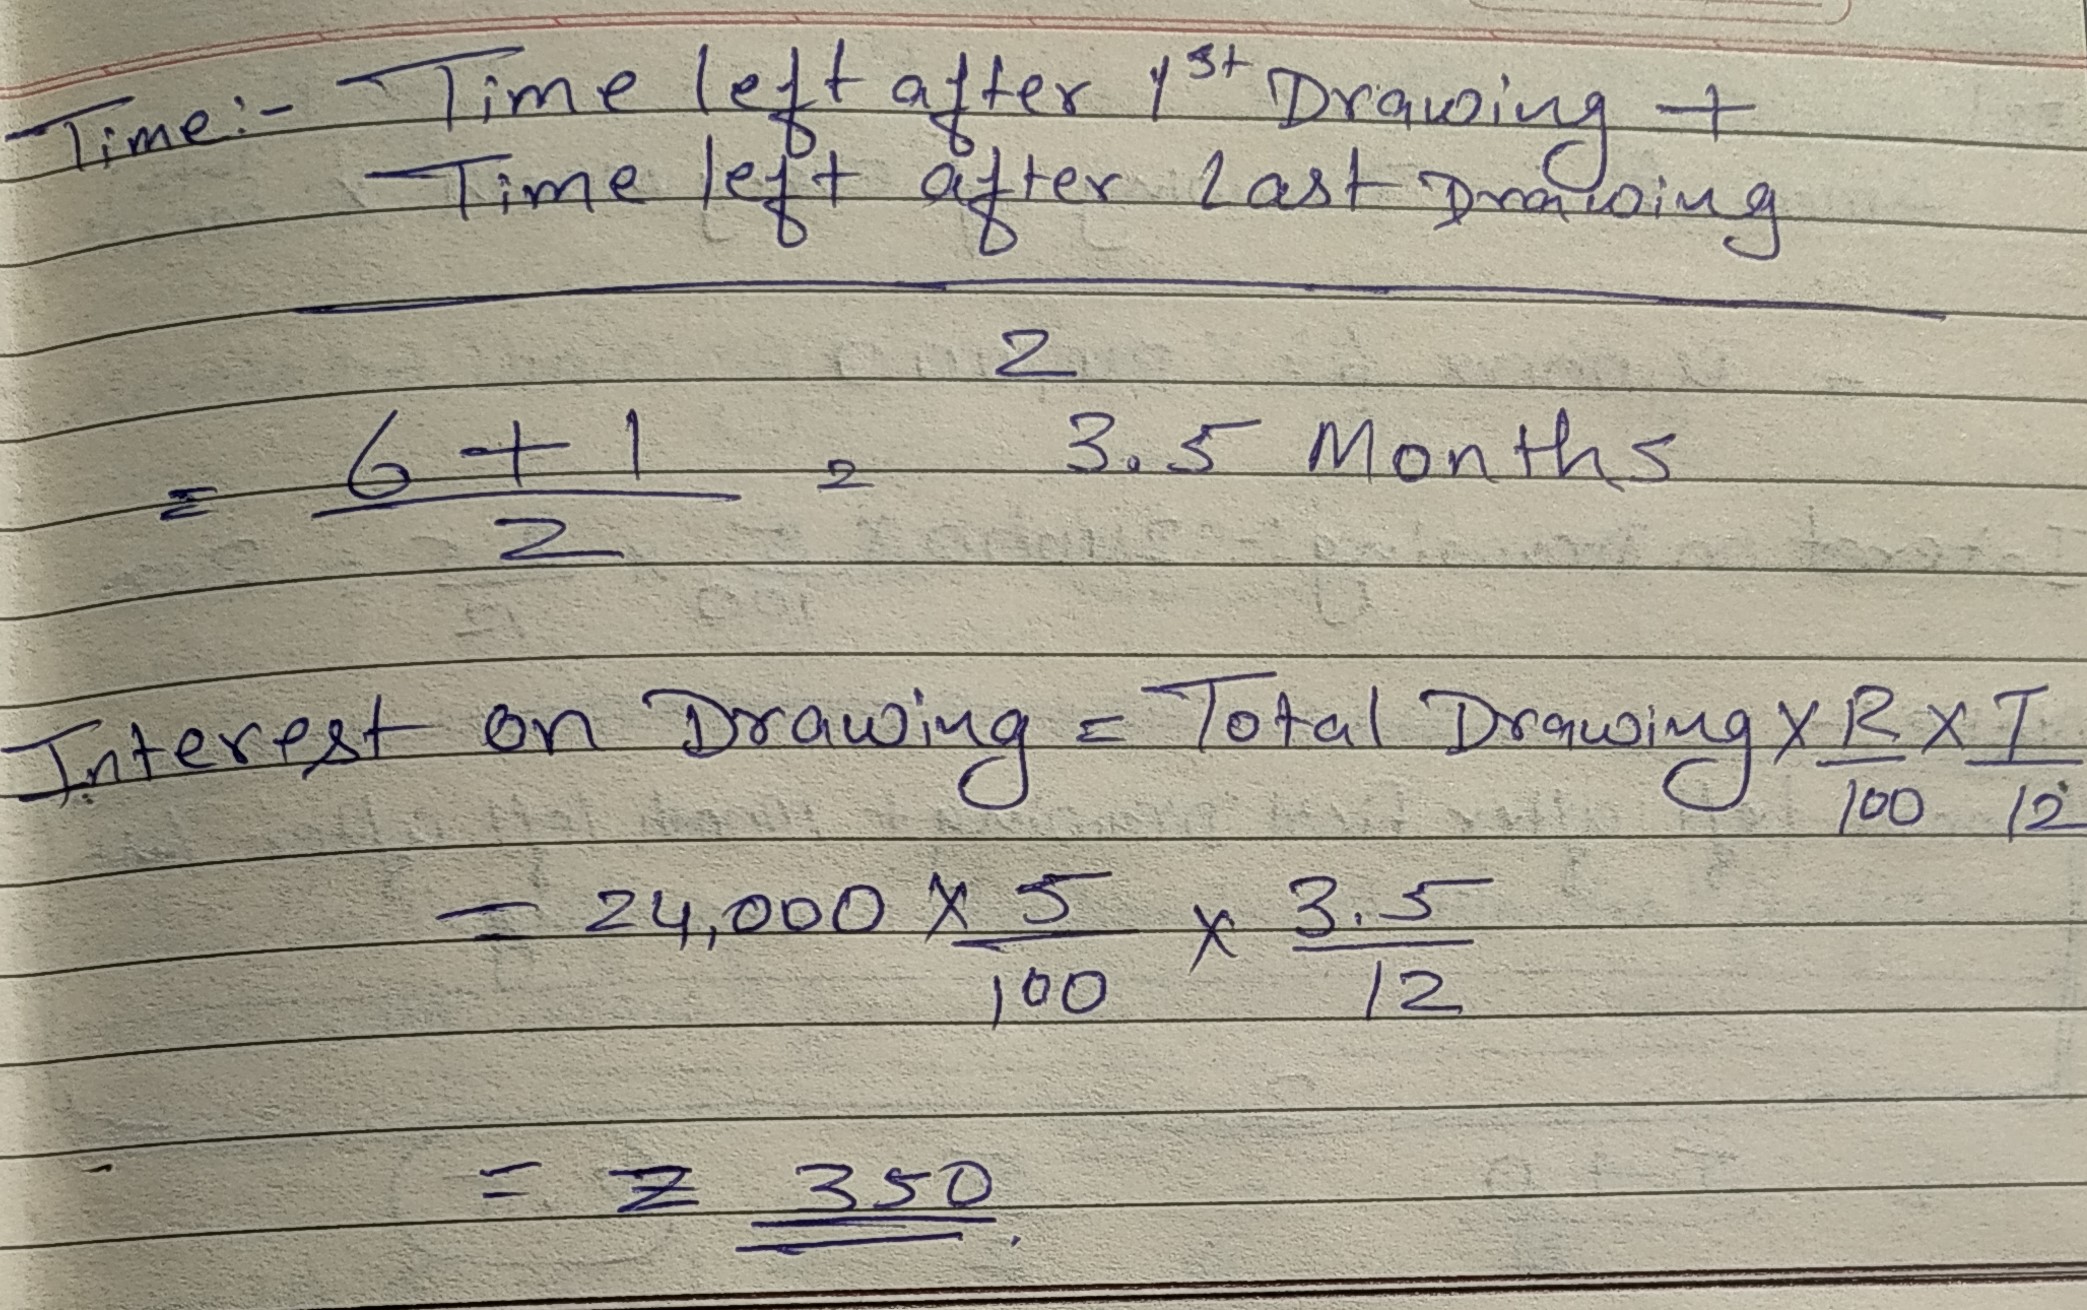 Time:- Time left after 1st Drawing +
Time left after Last Drawing
2
= 6 + 1 / 2 = 3.5 Months
Interest on Drawing = Total Drawing x R/100 x T/12
= 24,000 x 5/100 x 3.5/12
= ₹ 350.